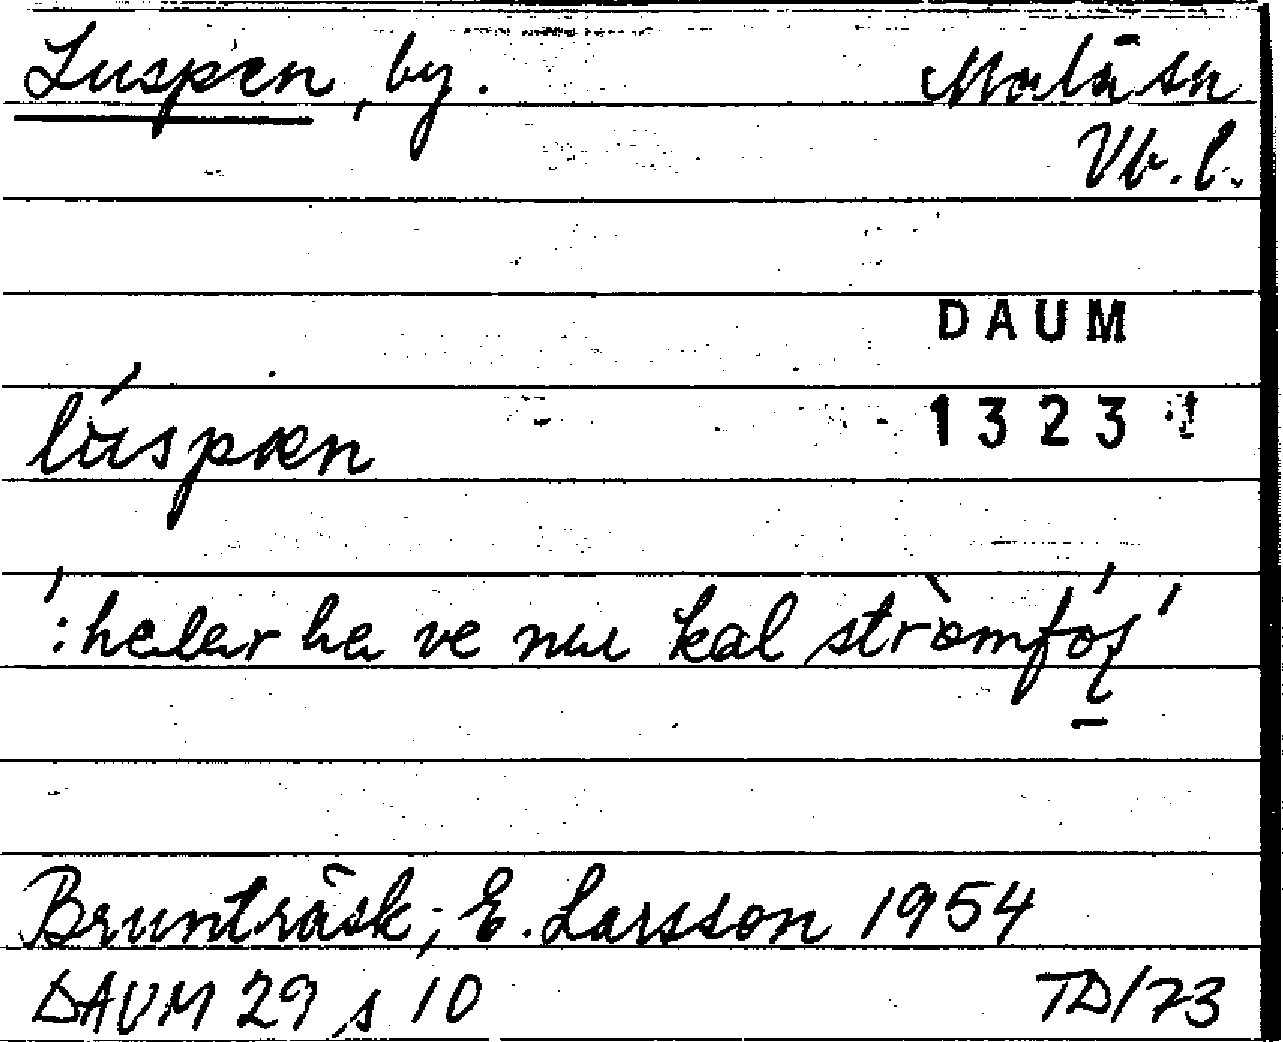 Luspen, by. Malå sn
Vb. l.
DAUM
1323
lúspæn
': heler he ve nu kal stròmfó̱ʃ'
Bruntråsk; E. Larsson 1954
DAUM 29 s 10 TD/73